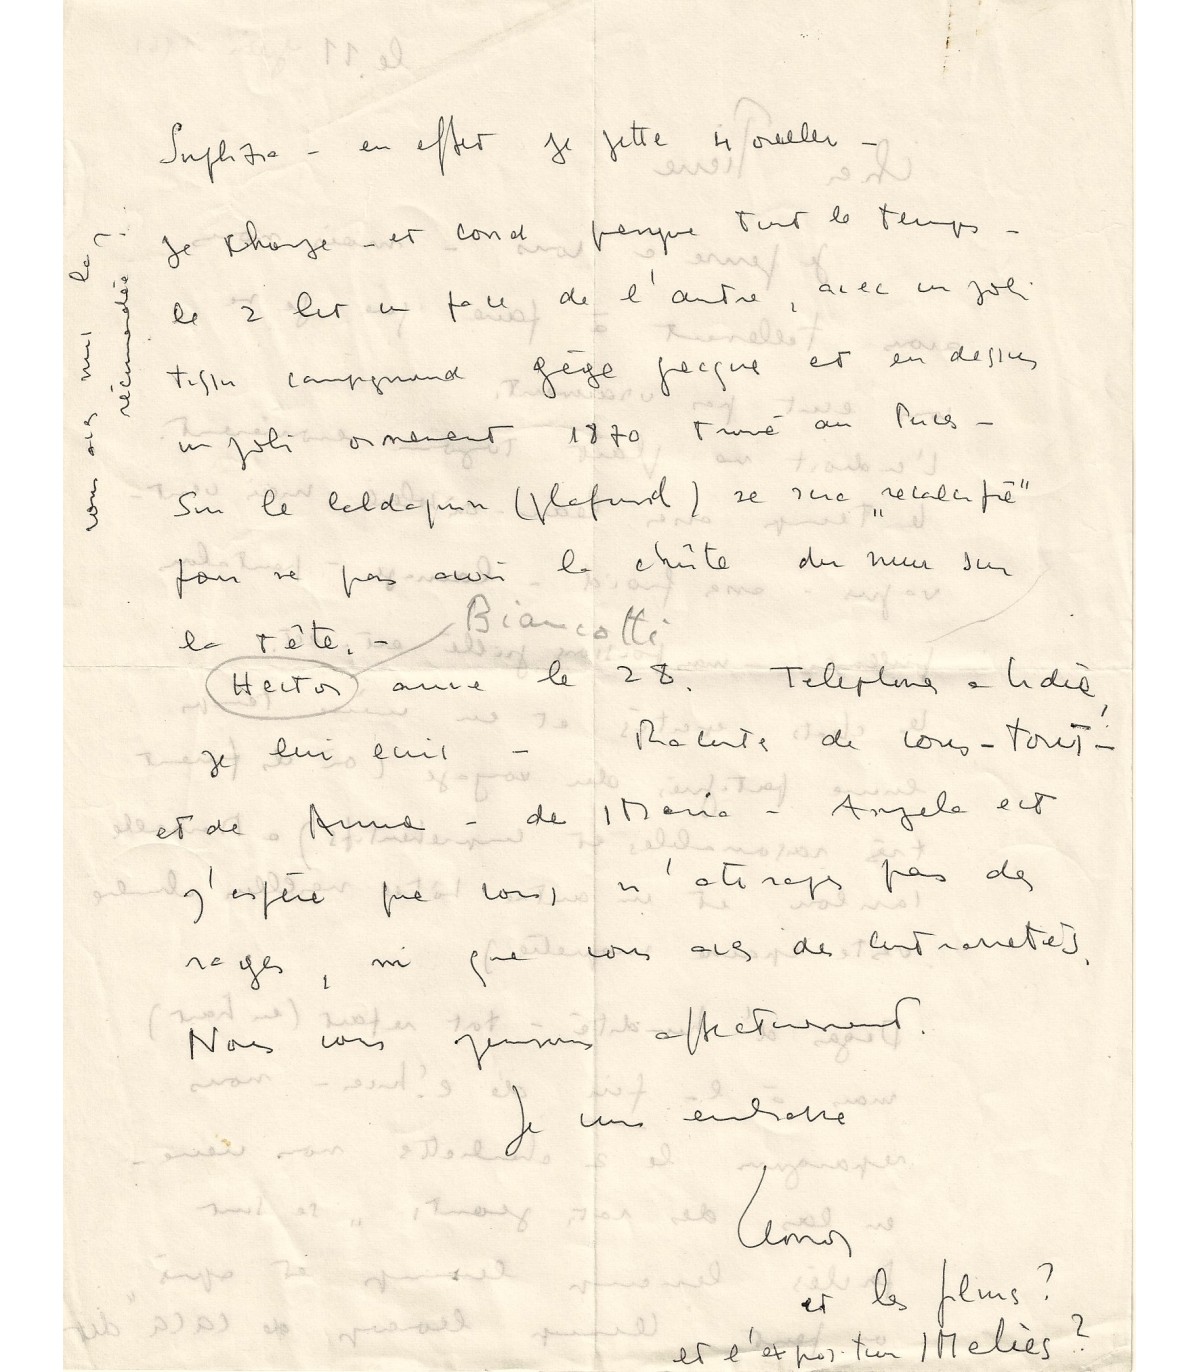 en effet je jette
Je change - et coud presque tout le temps -
le 2 lit en face de l'autre, avec un joli
tissu campagnard et en dessus
un joli ornement 1870 trouvé au Puces -
Sur le baldaquin (plafond) se sera "recalcifié"
pour ne pas avoir la chûte du mur sur
la tête. -
Biancotti
Hector arrive le 28. Telephones a lidia,
je lui écris - Racontes de vous - tout -
et de Anna - de Maria - Angela et
j'espère que vous n'
pas des
rages, ni que vous avez des contrarietés.
Nous vous pensons affectueusement.
Je vous embrasse
Leonor
et les films?
et l'exposition Meliès?
vous avez reçu la
récommandée?